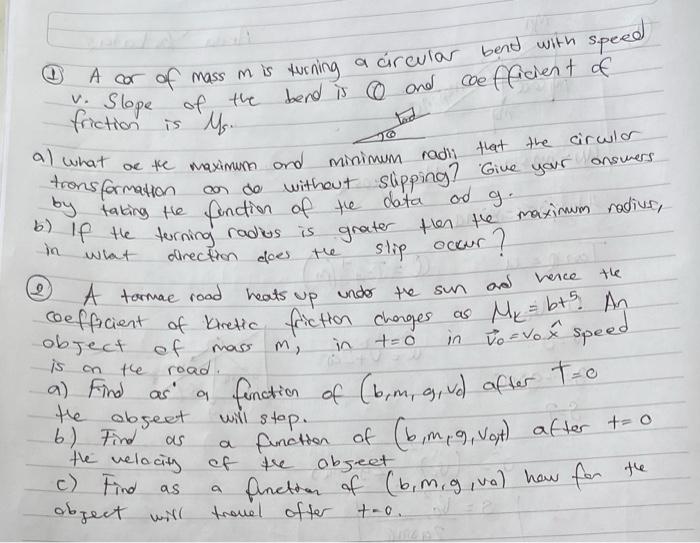 ① A car of mass m is turning a circular bend with speed
v. Slope of the bend is θ and coefficient of
friction is Ms.
a) what are the maximum and minimum radii that the circular
transformation can do without slipping? Give your answers
by taking the function of the data and g.
b) If the turning radius is greater then the maximum radius,
in what direction does the slip occur?
② A tarmac road heats up under the sun and hence the
coefficient of kinetic friction changes as Mk = bt⁵. An
object of mass m, in t=0 in v⃗₀ = v₀ x̂ speed
is on the road.
a) Find as a function of (b, m, g, v₀) after T=0
the obseet will stop.
b) Find as a function of (b, m, g, v₀, t) after t=0
the velocity of the obseet
c) Find as a function of (b, m, g, v₀) how far the
object will travel after t=0.